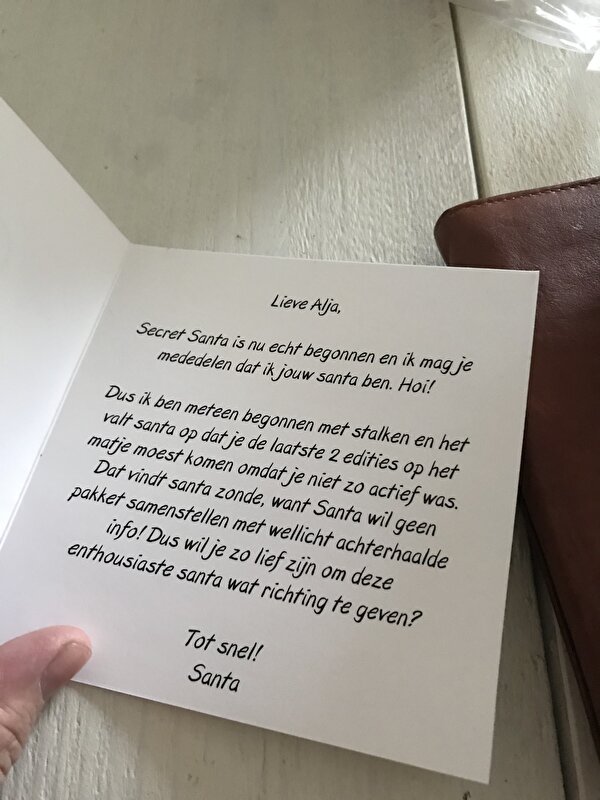 Lieve Alja,
Secret Santa is nu echt begonnen en ik mag je
mededelen dat ik jouw santa ben. Hoi!
Dus ik ben meteen begonnen met stalken en het
valt santa op dat je de laatste 2 edities op het
matje moest komen omdat je niet zo actief was.
Dat vindt santa zonde, want Santa wil geen
pakket samenstellen met wellicht achterhaalde
info! Dus wil je zo lief zijn om deze
enthousiaste santa wat richting te geven?
Tot snel!
Santa